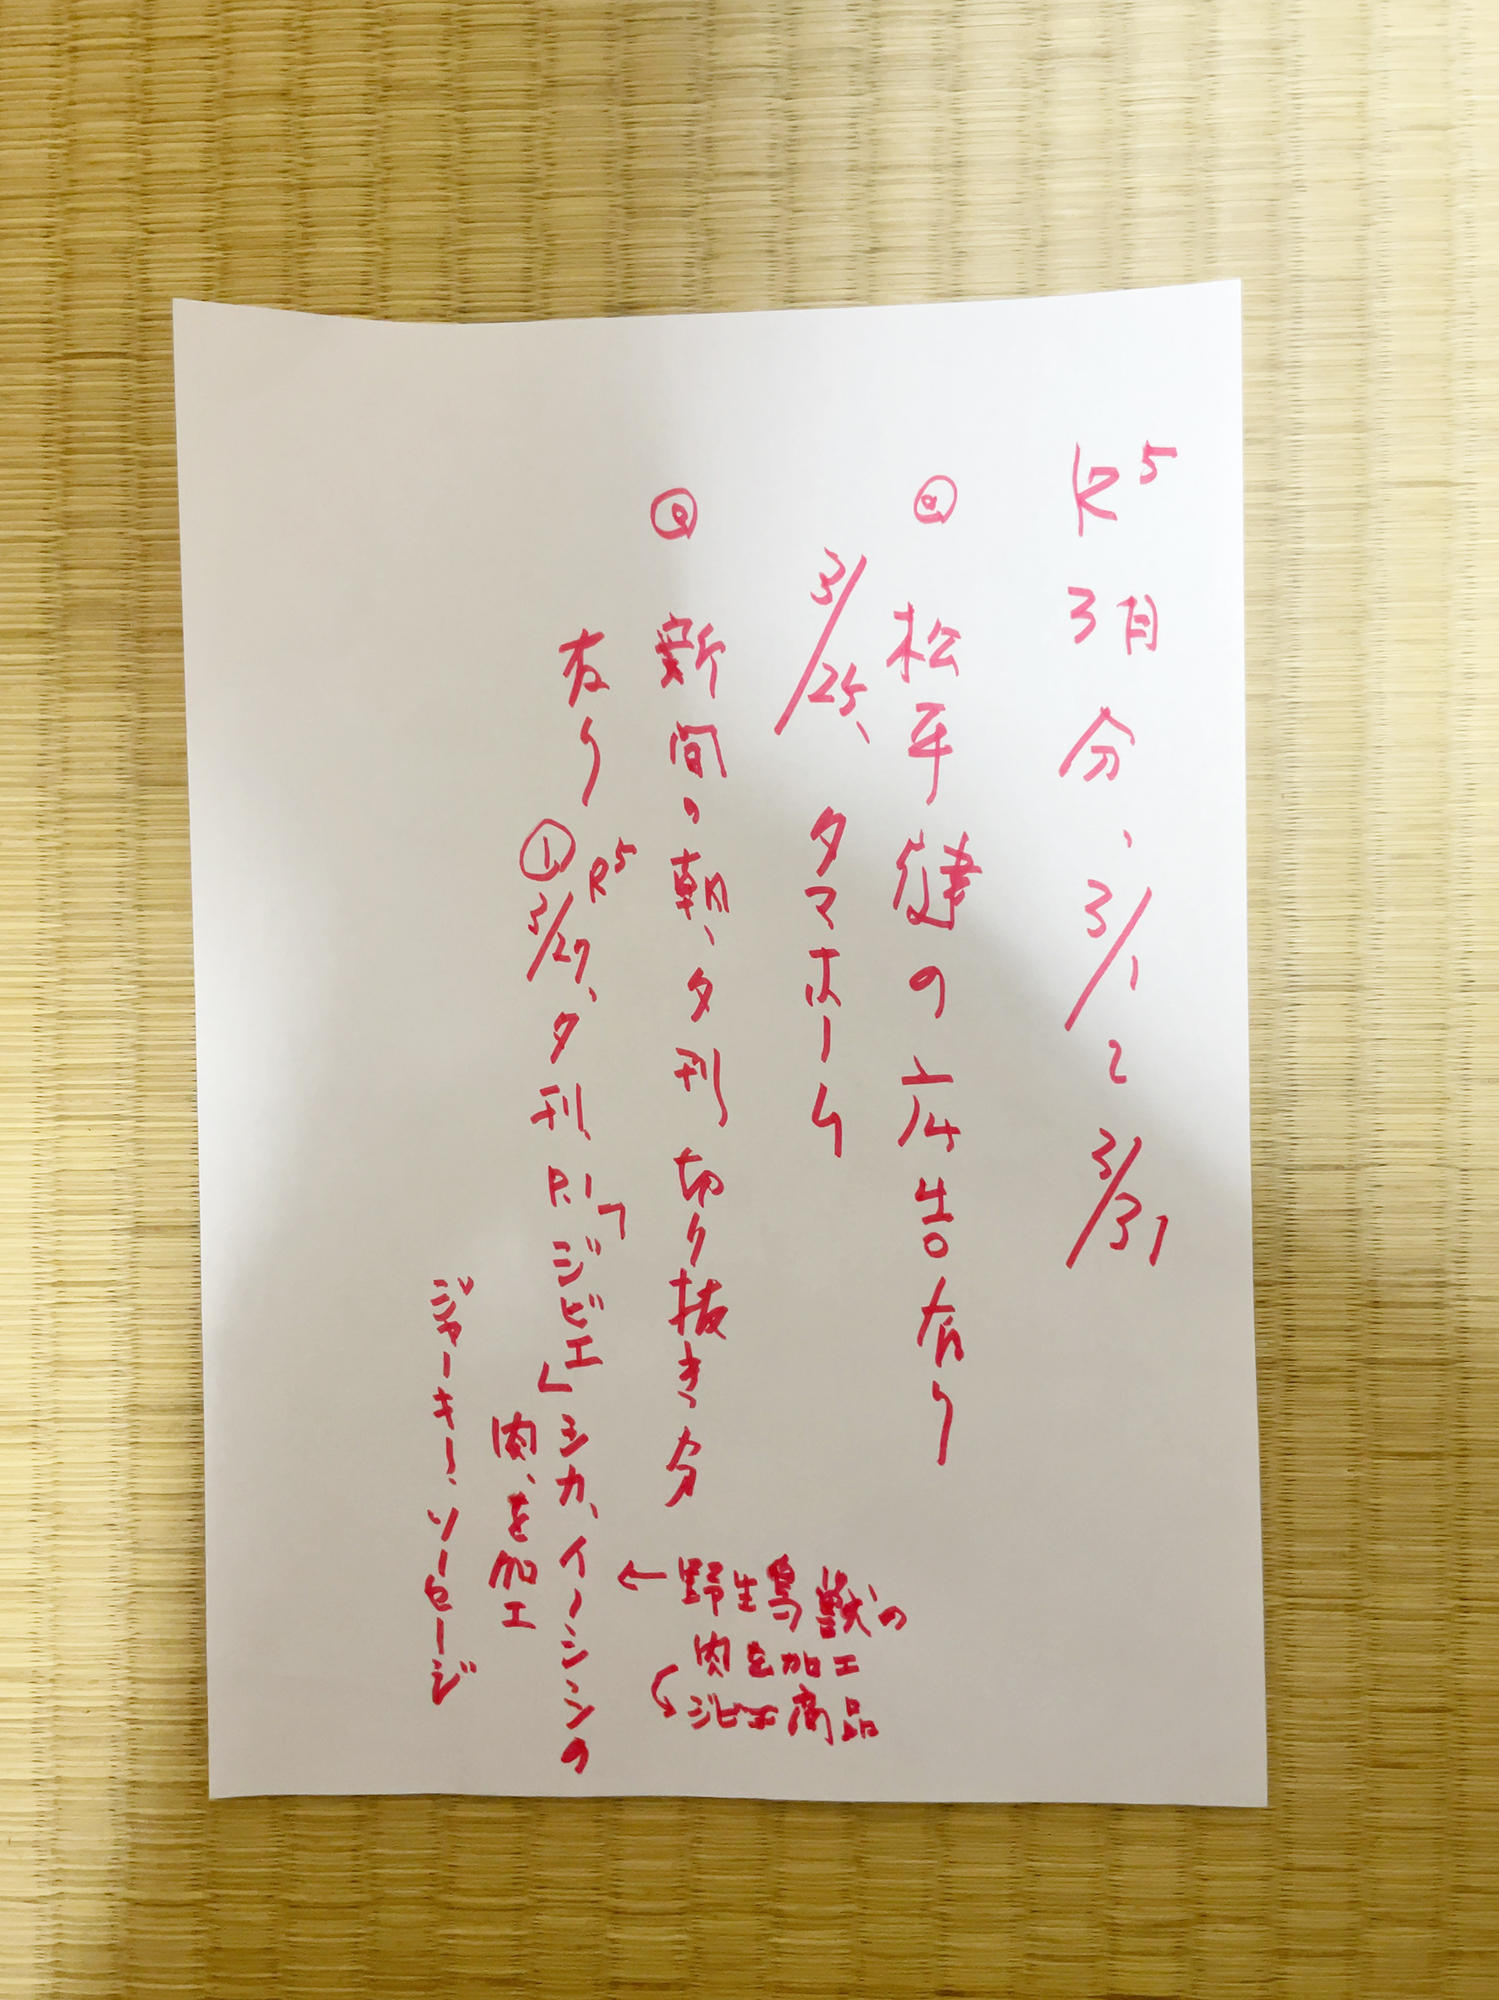 R5 3月分、3/1〜3/31
◎ 松平健の広告有り
3/25、タマホーム
◎ 新聞の朝、夕刊切り抜き分
有り
① R5 3/27、夕刊、P.1「ジビエ」シカ、イノシシの
肉、を加工
ジャーキー、ソーセージ
← 野生鳥獣の
肉を加工
ジビエ商品